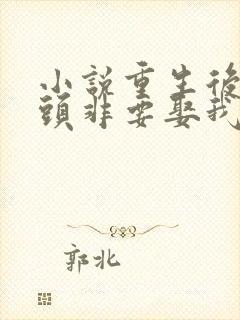 小説重生後
頭非要娶我
郭北